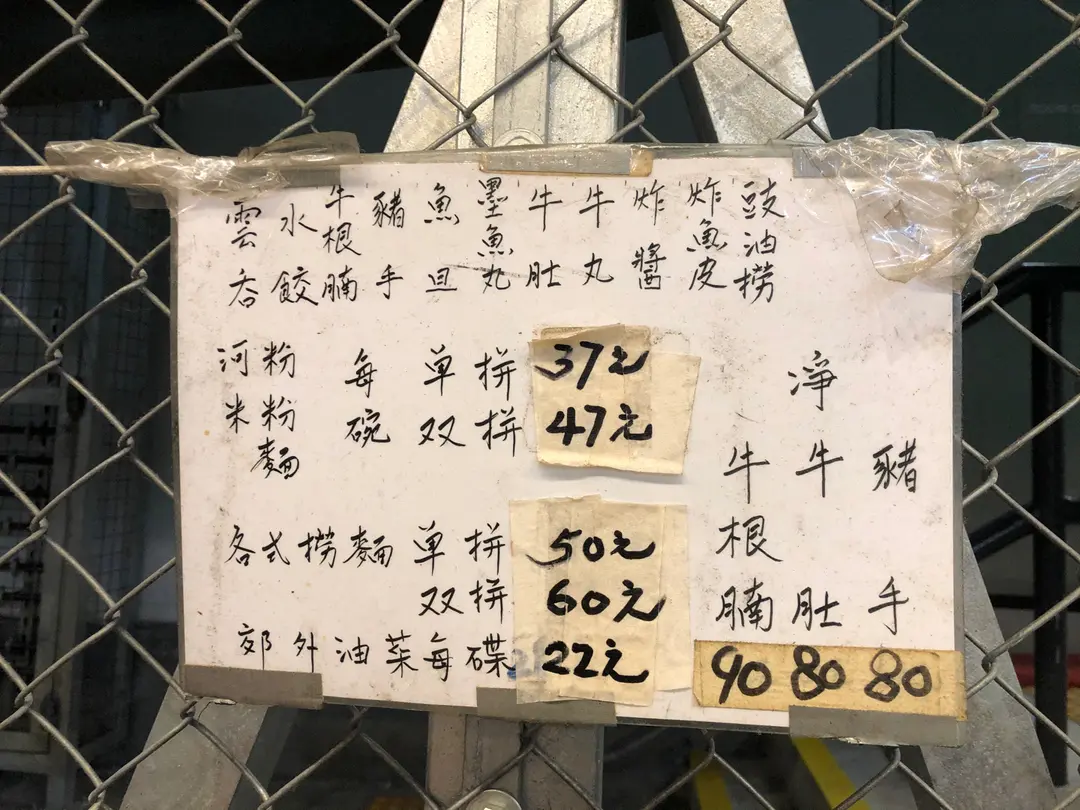 雲吞
水餃
牛根腩
豬手
魚旦
墨魚丸
牛肚
牛丸
炸醬
炸魚皮
豉油撈
河粉
米粉
麵
每碗
单拼 37元
双拼 47元
各式撈麵 单拼 50元
双拼 60元
郊外油菜每碟 22元
淨
牛根腩 90
牛肚 80
豬手 80